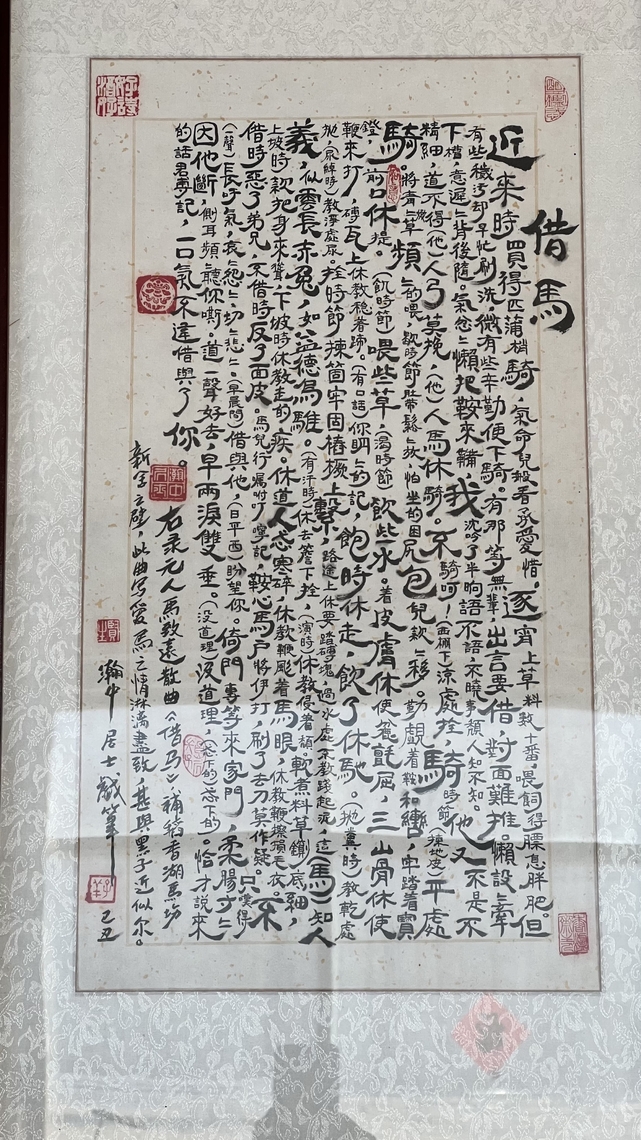 借馬
近來時買得匹蒲梢騎，氣命兒般看承愛惜。逐宵上草料數十番，喂飼得膘息胖肥。但
有些穢污却早忙刷洗，微有些辛勤便下騎，有那等無輩，出言要借，對面難推。懶設設牽
下槽，意遲遲背後隨。氣忿忿懶把鞍來鞴。我沉吟了半晌語不語，不曉事頹人知不知。他又不是不
精細，道不得(他)人弓莫挽，(他)人馬休騎。不騎呵！(西棚下)涼處拴，騎時節(揀地皮)平處
騎。將青青草頻頻的喂，歇時節肚帶鬆鬆放，怕坐的困尻包兒款款移。勤覷着鞍和轡，牢踏着寶
鐙，前口休提。(飢時節)喂些草，(渴時節)飲些水。着皮膚休使麄氈屈，三山骨休使
鞭來打，磚瓦上休教穩着蹄。(有口話)你明明的記，飽時休走，飲了休馳。(抛糞時)教乾處
抛，(尿綽時)教淨處尿。拴時節揀箇牢固樁橛上繫，路途上休要踏磚塊，過水處不教踐起泥。這(馬)知人
義，似雲長赤兔，如益德烏騅。(有汗時)休去簷下拴，(渲時)休教侵着頹。軟煮料草鍘底細，
上坡時款把身來聳，下坡時休教走的疾。休道人忒寒碎，休教鞭彪着馬眼，休教鞭擦損毛衣。不
借時惡了弟兄，不借時反了面皮。馬兒行囑咐叮嚀記，鞍心馬戶將伊打，刷了去刀莫作疑。只嘆得
(一聲)長吁氣，哀哀怨怨，切切悲悲。(早晨間)借與他，(日平西)盼望你。倚門專等來家門，柔腸寸寸
因他斷，側耳頻頻聽你嘶。道一聲好去，早兩淚雙垂。(没道理)没道理，(忒下的)忒下的。恰才說來
的話君專記，一口氣不違借與了你。
右录元人馬致遠散曲《借马》補稻香湖馬坊
新室之壁，此曲写愛馬之情淋漓盡致，甚與黑子近似尔。
瀚中居士戲筆 己丑